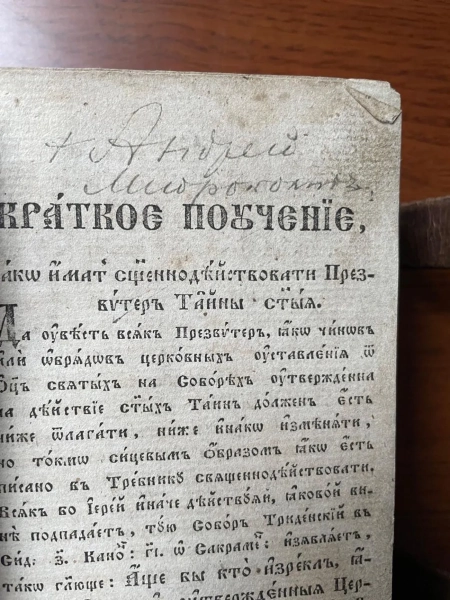 + Андрей
КРА́ТКОЕ ПОꙊЧЕ́НІЕ,
ꙗ҆́кѡ и҆́мат̾ сщ҃еннодѣ́йствовати През-
ву́терꙋ Та̑йны ст҃ы́ѧ.
Да ᲂу҆вѣ́сть всѧ́къ Презвѵ́теръ, ꙗ҆́кѡ чи́нѡвъ
и҆лѝ ѡ҆брѧ́дѡвъ церко́вныхъ ᲂу҆ставле́нїѧ ѿ
Ѻ҆ц҃ъ свѧты́хъ на Собо́рѣхъ ᲂу҆твержде́нна
на дѣ́йствїе ст҃ы́хъ Та́инъ до́лженъ є҆́сть
ни́же ѿлага́ти, ни́же и҆на́кѡ и҆змѣнѧ́ти,
но то́кмѡ си́цевымъ ѻ҆́бразомъ ꙗ҆́кѡ є҆́сть
пи́сано въ Тре́бникꙋ свѧщеннодѣ́йствовати.
Всѧ́къ во І҆ере́й и҆на́че дѣ́йствꙋѧй, ꙗ҆ково́й ви-
нѣ̀ подпада́етъ, тꙋ́ю Собо́ръ Триде́нскїй въ
Сид: з҃. Кано̑: г҃і. ѡ҆ Сакраме̑: и҆з̾ѧвлѧ́етъ,
та́кѡ гл҃юще: А҆́ще бы кто̀ и҆зре́клъ, ꙗ҆́-
ᲂу҆твержде́нныѧ Цер-